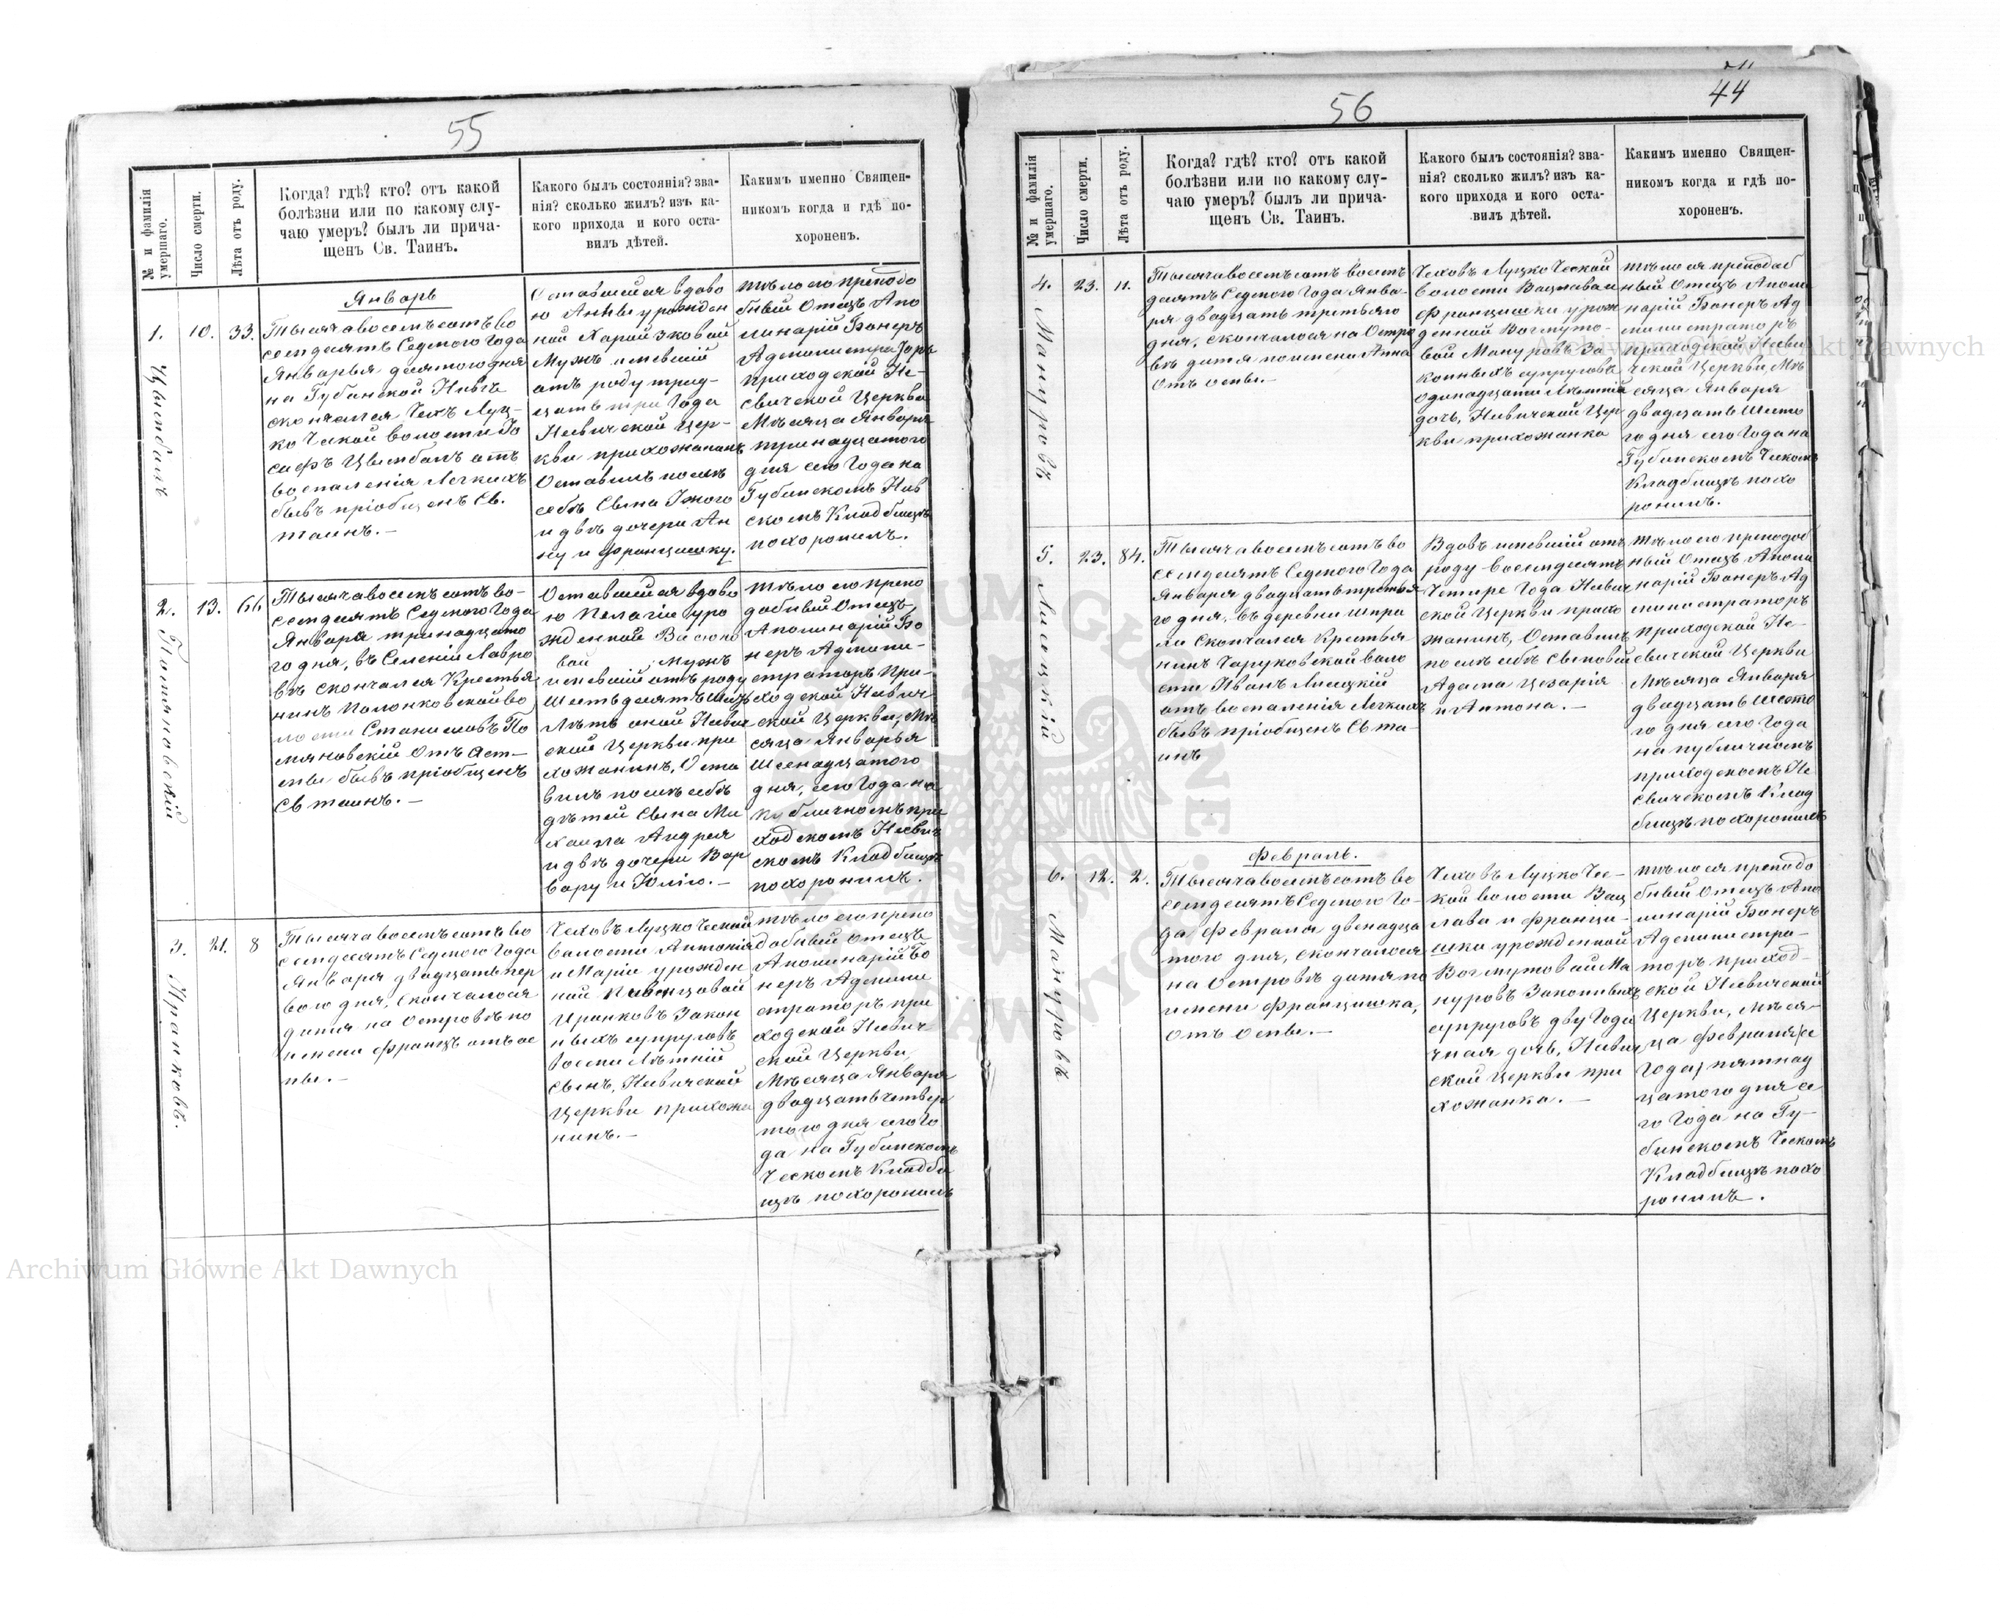 55
№ и фамилія умершаго.
Число смерти.
Лѣта отъ роду.
Когда? гдѣ? кто? отъ какой
болѣзни или по какому слу-
чаю умеръ? былъ ли прича-
щенъ Св. Таинъ.
Какого былъ состоянія? зва-
нія? сколько жилъ? изъ ка-
кого прихода и кого оста-
вилъ дѣтей.
Какимъ именно Священ-
никомъ когда и гдѣ по-
хороненъ.
1.
10.
33.
Январь
Тысяча восемъсотъ во
семдесятъ Седмого Года
Январья десятого дня
на Губинской Нивѣ
скончался Чехъ Луц-
ко Ческой волости Іо
сифъ Цымбалъ отъ
воспаленія Легкихъ
бывъ пріобщенъ Св.
таинъ. —
Оставшейся вдово
ю Анны урожден
ной
Мужъ имевшій
отъ роду трид-
цать три Года
Несвичской Цер-
кви прихожанинъ
Оставилъ послѣ
себѣ Сына
и двѣ дочери Ан
ну и Францишку.
тѣло его преподо
бный Отецъ Апо
линарій Бонеръ
Администраторъ
приходской Не-
свичской Церкви
Мѣсяца Января
тринадцатого
дня сего Года на
Губинскомъ Чес
скомъ Кладбищѣ
похоронилъ.
2.
13.
66
Тысяча восемъсотъ во-
семдесятъ Седмого Года
Января тринадцато
го дня, въ Селеніи Лавро
вѣ скончался Крестья
нинъ Полонковской во
лости Станиславъ По
мяновскій Отъ аст-
мы бывъ пріобщенъ
Св таинъ. —
Оставшейся вдово
ю Пелагіи уро
жденной
вой мужъ
имевшій отъ роду
Шестьдесятъ Шесть
Лѣтъ оной Несвич
ской Церкви при
хожанинъ, Оста
вилъ послѣ себѣ
дѣтей Сына Ми
хаила Андрея
и двѣ дочери Вар
вару и Юлію. —
тѣло его препо
добный Отецъ
Аполинарій Бо
неръ Админи-
страторъ При-
ходской Несвич
ской Церкви, Мѣ
сяца Январья
Шеснадцатого
дня, сего Года на
публичномъ при
ходскомъ Несвич
скомъ Кладбищѣ
похоронилъ.
3.
21.
8
Тысяча восемъсотъ во
семдесятъ Седмого Года
Января двадцать пер
вого дня, Скончалося
дитя на Островѣ по
имени Францъ отъ ос
пы. —
Чеховъ Луцко Ческой
волости Антонія
и Маріи урожден
ной
Законн
ныхъ супруговъ
восми Лѣтній
сынъ, Несвичской
Церкви прихожа
нинъ. —
тѣло его препо
добный Отецъ
Аполинарій Бо
неръ Админи
страторъ при
ходской Несвич
ской Церкви
Мѣсяца Января
двадцать четвер
того дня сего Го
да на Губинскомъ
Ческомъ Кладби
щѣ похоронилъ
56
44
№ и фамилія умершаго.
Число смерти.
Лѣта отъ роду.
Когда? гдѣ? кто? отъ какой
болѣзни или по какому слу-
чаю умеръ? былъ ли прича-
щенъ Св. Таинъ.
Какого былъ состоянія? зва-
нія? сколько жилъ? изъ ка-
кого прихода и кого оста-
вилъ дѣтей.
Какимъ именно Священ-
никомъ когда и гдѣ по-
хороненъ.
4.
Мануровъ
23.
11.
Тысяча восемъсотъ восемъ
десятъ Седмого Года Янва-
ря двадцать третьяго
дня, скончалося на Остро
вѣ дитя по имени Анна
Отъ оспы. —
Чеховъ Луцко Ческой
волости Вацлава и
Францишки урож
денной Вогмуто-
вой Мануровъ За
конныхъ супруговъ
одинадцати Лѣтній
дочь, Несвичской Цер
кви прихожанка
тѣло ея преподоб
ный Отецъ Аполи
нарій Бонеръ Ад
министраторъ
приходской Несви
чской Церкви, Мѣ
сяца Января
двадцать Шесто
го дня сего Года на
Губинскомъ Ческомъ
Кладбищѣ похо
ронилъ.
5.
Лисецкій
23.
84.
Тысяча восемъсотъ во
семдесятъ Седмого Года
Января двадцать третья
го дня, въ деревни
Скончался Крестья
нинъ Чаруковской воло
сти Иванъ Лисецкій
отъ воспаленія Легкихъ
бывъ пріобщенъ Св та-
инъ
Вдовъ имевшій отъ
роду восемдесятъ
Четире Года Несвич
ской Церкви прихо
жанинъ, Оставилъ
послѣ себѣ сыновей
Адама Цезарія
и Антона. —
тѣло его преподоб
ный Отецъ Аполи
нарій Бонеръ Ад
министраторъ
Приходской Не-
свичской Церкви
Мѣсяца Января
двадцать Шесто
го дня сего Года
на публичномъ
приходскомъ Не
свичскомъ Клад
бищѣ похоронилъ
6.
Мануровъ
12.
2.
Февраль.
Тысяча восемъсотъ во
семдесятъ Седмого Го-
да Февраля двенадца
того дня, скончалося
на Островѣ дитя по
имени Францишка,
Отъ Оспы. —
Чеховъ Луцко Чес-
кой волости Вац
лава и Франци-
шки урожденной
Вогмутовой Ма
нуровъ Законныхъ
супруговъ дву Года
чная дочь, Несвич
ской Церкви при
хожанка. —
тѣло ея преподо
бный Отецъ Апо
линарій Бонеръ
Администра-
торъ приход-
ской Несвичской
Церкви, Мѣся-
ца Февраля
пятнад
цатого дня се
го Года на Гу-
бинскомъ Ческомъ
Кладбищѣ похо
ронилъ.
Archiwum Główne Akt Dawnych
Archiwum Główne Akt Dawnych